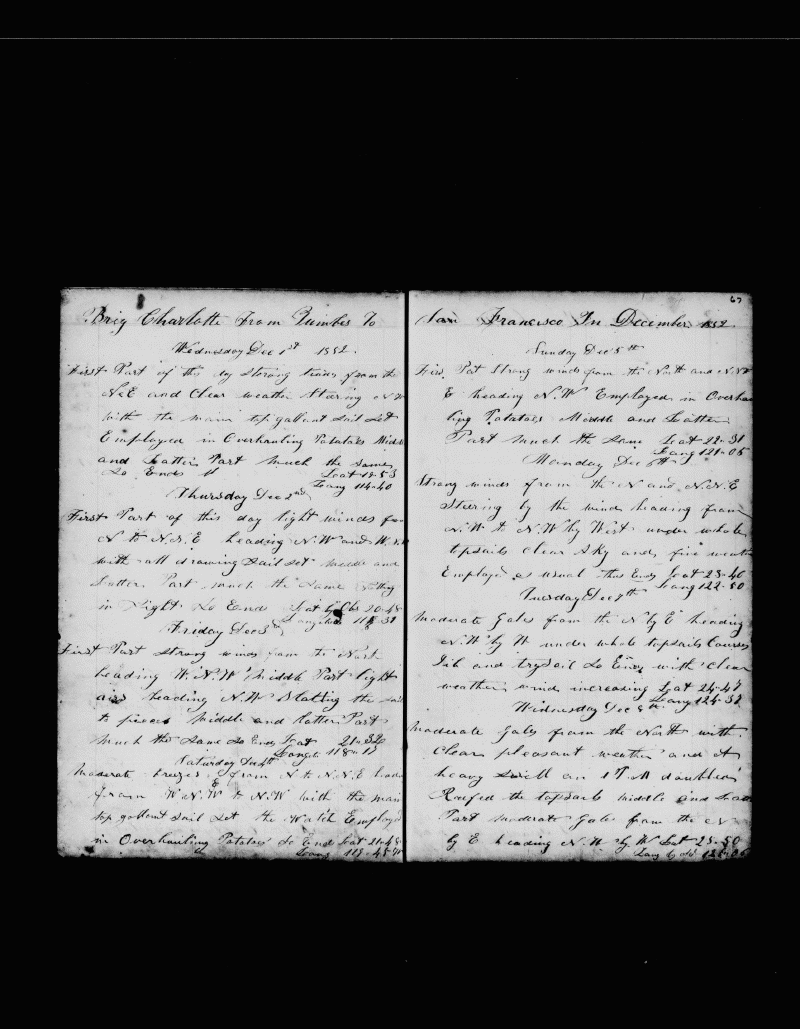 Brig Charlotte From Tumbes To
Wednesday Dec 1st 1852.
First Part of the day strong winds from the
N&E and Clear weather Stearing N W
with the main top gallant sail Set
Employed in Overhauling Potatoes Middle
and Latter Part Much the Same
So Ends Lat 18-53
Long 114-40
Thursday Dec 2nd
First Part of this day light winds from
N to N.N.E heading N.W and W.N.W
with all drawing Sail Set middle and
Latter Part much the Same
in Sight So Ends Lat by Obs 20-48
Long 116-31
Friday Dec 3d
First Part Strong winds from the North
heading W.N.W Middle Part light
airs heading N.W Slatting the sails
to pieces Middle and latter Part
Much the Same So Ends Lat 21-32
Longit 118-17
Saturday Dec 4th
Moderate breezes from N to N.N.E heading
from W.N.W to N.W with the main
top gallant Sail Set the Watch Employed
in Overhauling Potatoes So End Lat 21-48
Long 119-45 W
67
San Francisco In December 1852
Sunday Dec 5th
First Part Strong winds from the North and N.N
E heading N.W Employed in Overhau
ling Potatoes Middle and Latter
Part Much the Same Lat 22-31
Long 121-05
Monday Dec 6th
Strong winds from the N and N.N.E
Stearing by the wind heading from
N.W to N.W by West under whole
topsails Clear Sky and fine weather
Employed as usual thus Ends Lat 23-46
Long 122-50
Tuesday Dec 7th
Moderate Gales from the N by E heading
N.W by W under whole topsails Courses
Jib and trysail So Ends with Clear
weather wind increasing Lat 24-47
Long 124-37
Wednesday Dec 8th
Moderate Gales from the North with
Clear pleasant weather and A
heavy Swell on
Reefed the topsails middle and Latter
Part moderate Gales from the N
by E heading N.W by W Lat 25-50
Long by 126-06